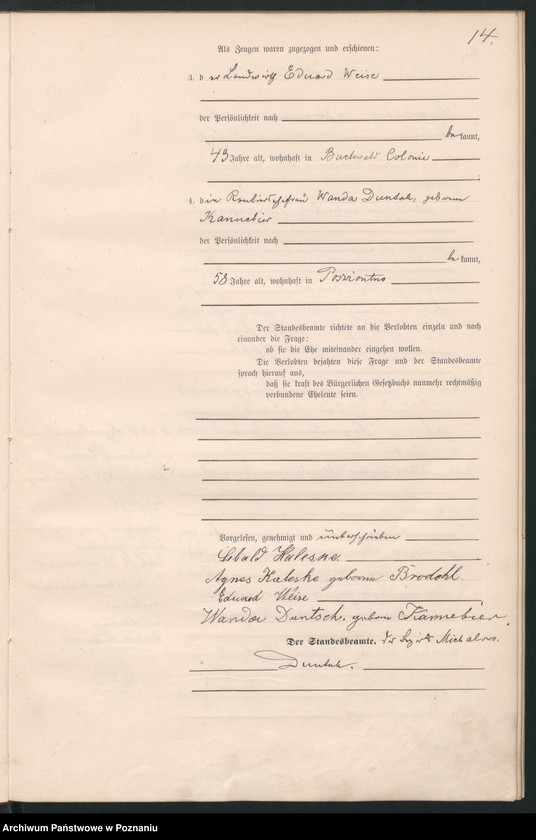 14.
Als Zeugen waren zugezogen und erschienen:
3. der Landwirth Eduard Weise
der Persönlichkeit nach
bekannt,
43 Jahre alt, wohnhaft in Buchwald Colonie
4. die Wanda Duntsch, geborene
Kannebier
der Persönlichkeit nach
bekannt,
58 Jahre alt, wohnhaft in
Der Standesbeamte richtete an die Verlobten einzeln und nach
einander die Frage:
ob sie die Ehe miteinander eingehen wollen.
Die Verlobten bejahten diese Frage und der Standesbeamte
sprach hierauf aus,
daß sie kraft des Bürgerlichen Gesetzbuchs nunmehr rechtmäßig
verbundene Eheleute seien.
Vorgelesen, genehmigt und unterschrieben
Agnes Kaleske geborene Brodehl
Eduard Weise
Wanda Duntsch, geborene Kannebier.
Der Standesbeamte.
Duntsch.
Archiwum Państwowe w Poznaniu